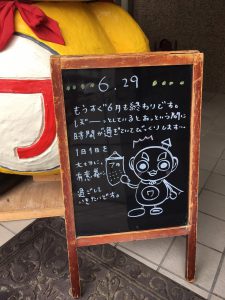 6.29
もうすぐ6月も終わりです。
ぼーっとしているとあっという間に
時間が過ぎていてびっくりします…
1日1日を
大切に、
有意義に
過ごして
いきたいです。
ワ